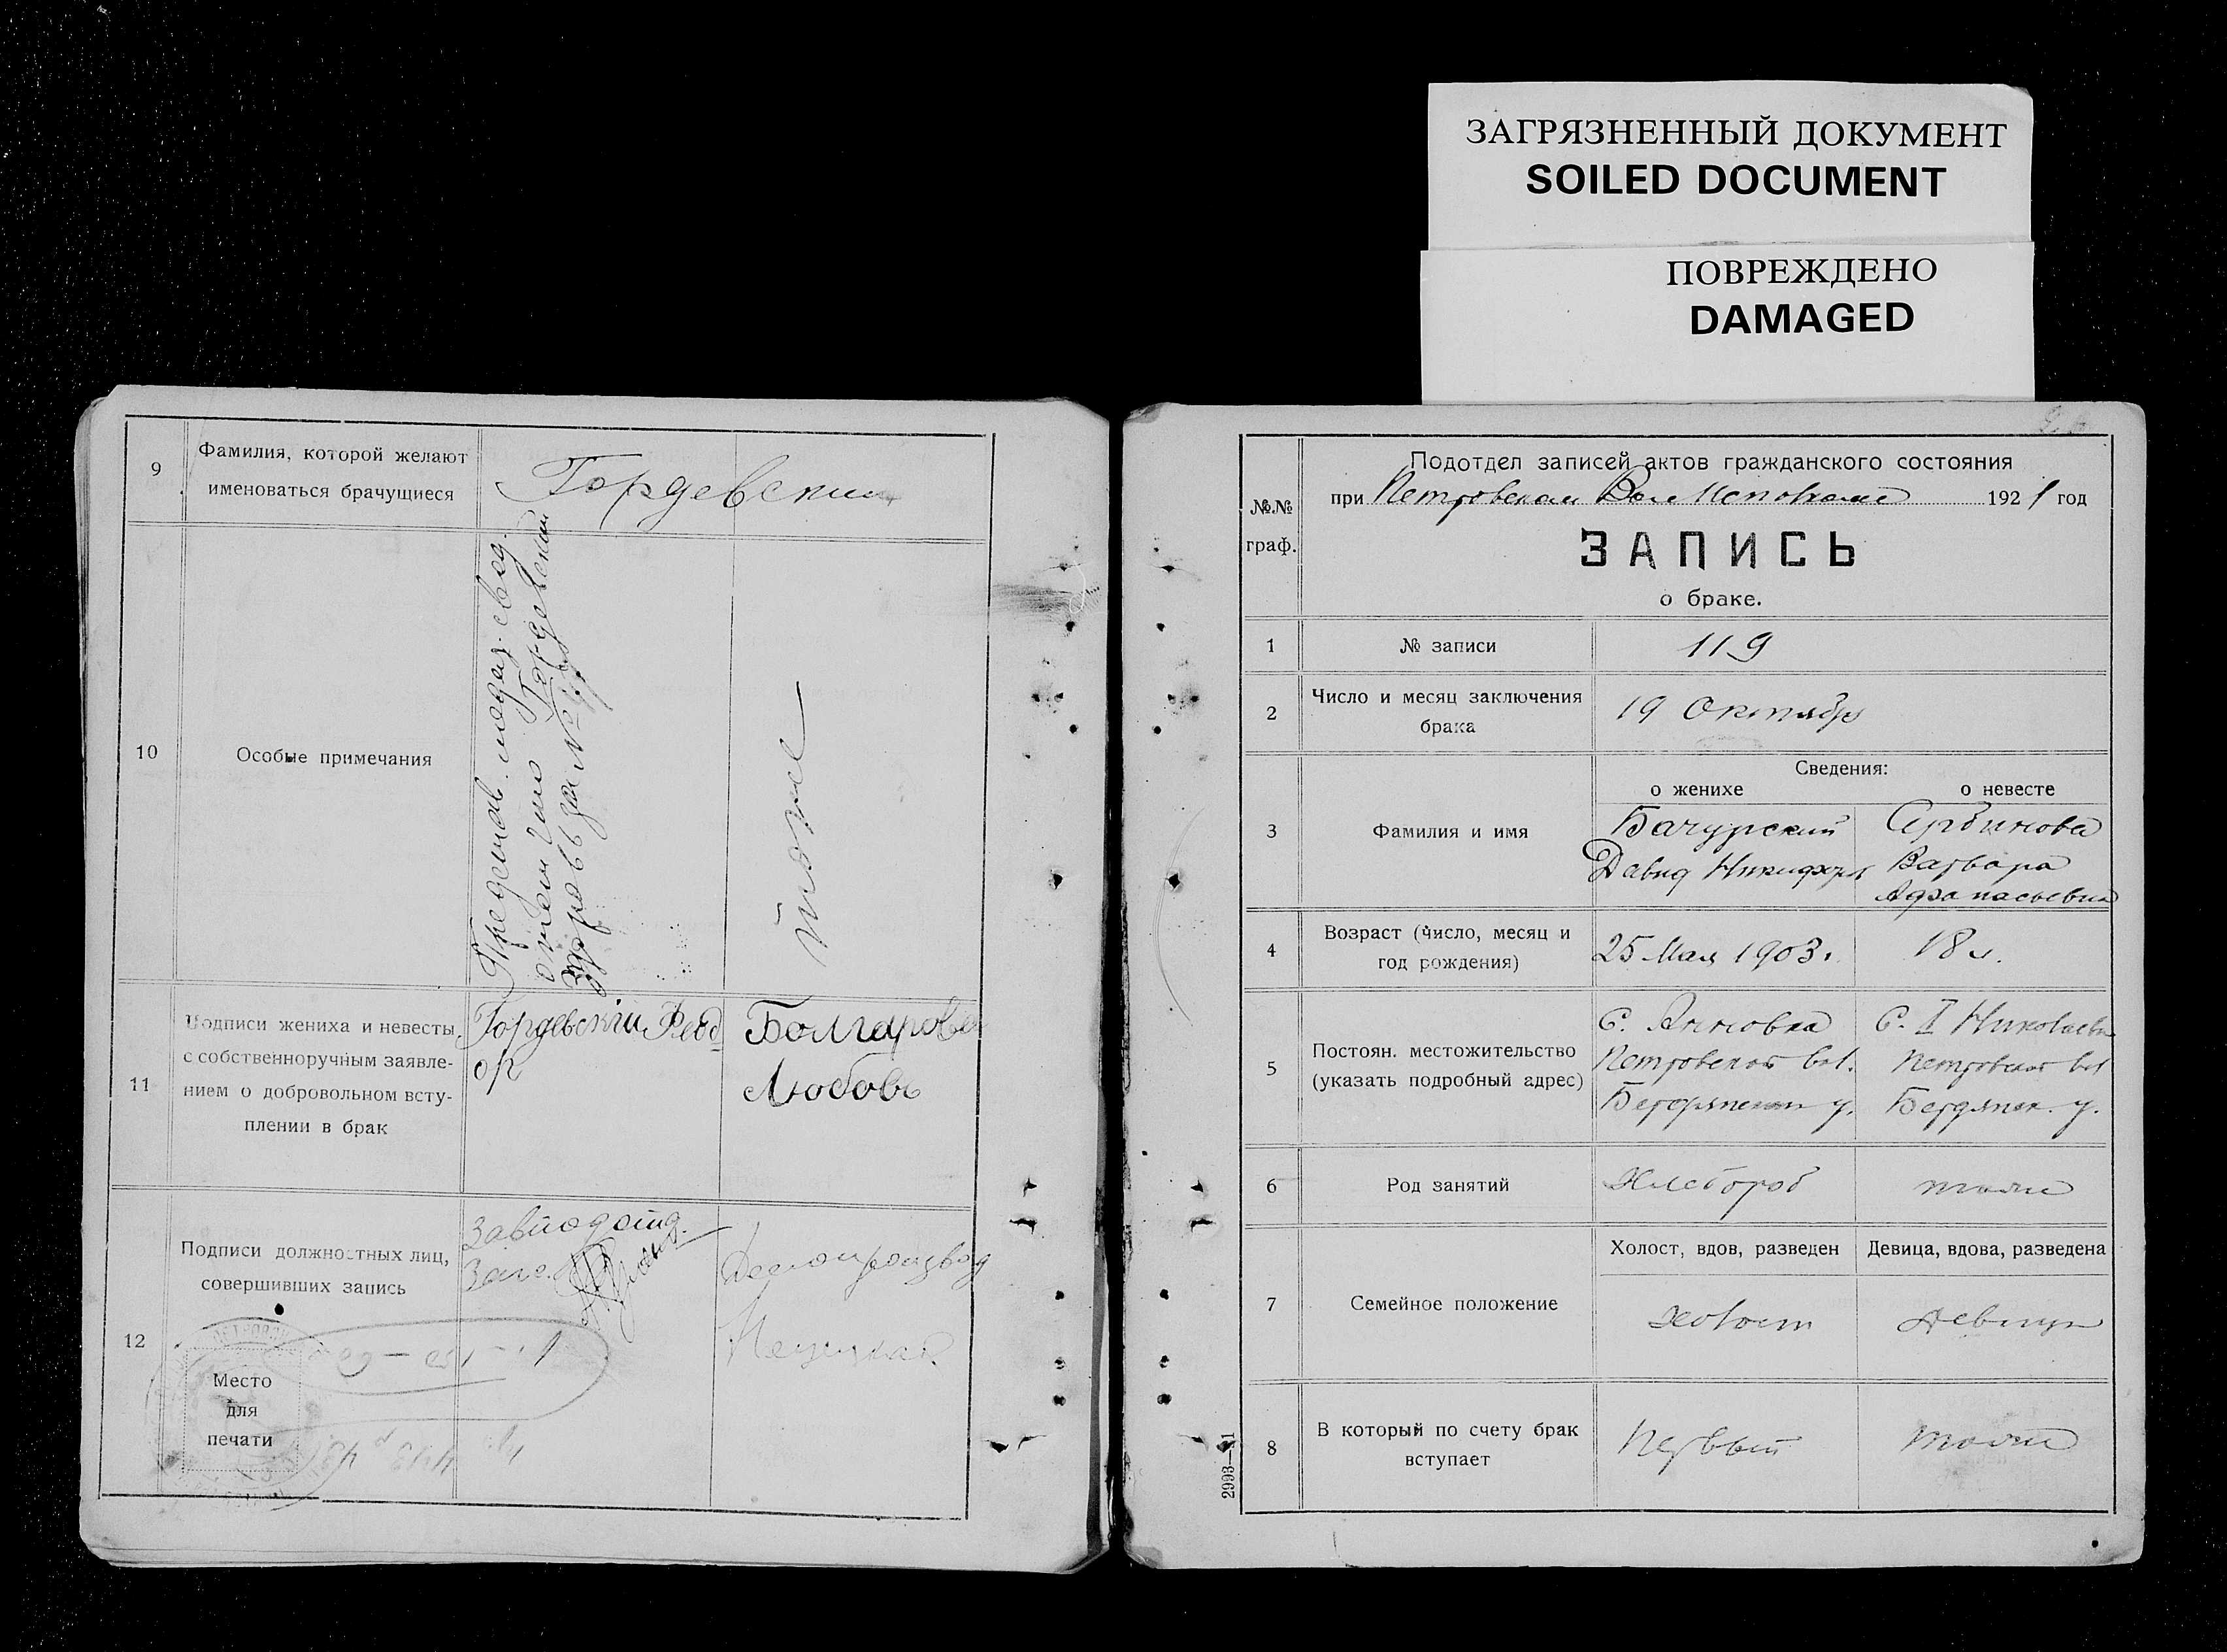 ЗАГРЯЗНЕННЫЙ ДОКУМЕНТ
SOILED DOCUMENT
ПОВРЕЖДЕНО
DAMAGED
9
Фамилия, которой желают
именоваться брачущиеся
Гордевский
10
Особые примечания
тоже
11
Подписи жениха и невесты
с собственноручным заявле-
нием о добровольном всту-
плении в брак
Гордевский Фед
ор
Болгарова
Любовь
12
Подписи должностных лиц,
совершивших запись
Завподотд.
Делопроизвод
Место
для
печати
№№
граф.
Подотдел записей актов гражданского состояния
при Петровском Вол 1921 год
ЗАПИСЬ
о браке.
1
№ записи
119
2
Число и месяц заключения
брака
19 Октября
Сведения:
о женихе
о невесте
3
Фамилия и имя
Бачурский
Давид Никифор
Сербинова
Варвара
Афанасьевна
4
Возраст (число, месяц и
год рождения)
25 Мая 1903 г.
18 л.
5
Постоян. местожительство
(указать подробный адрес)
С. Анновка
Петровской вол.
Бердянского у.
С. II Николаевка
Петровской вол
Бердянск. у.
6
Род занятий
Хлебороб
тоже
7
Семейное положение
Холост, вдов, разведен
Девица, вдова, разведена
холост
девица
8
В который по счету брак
вступает
Первый
тоже
2993—21